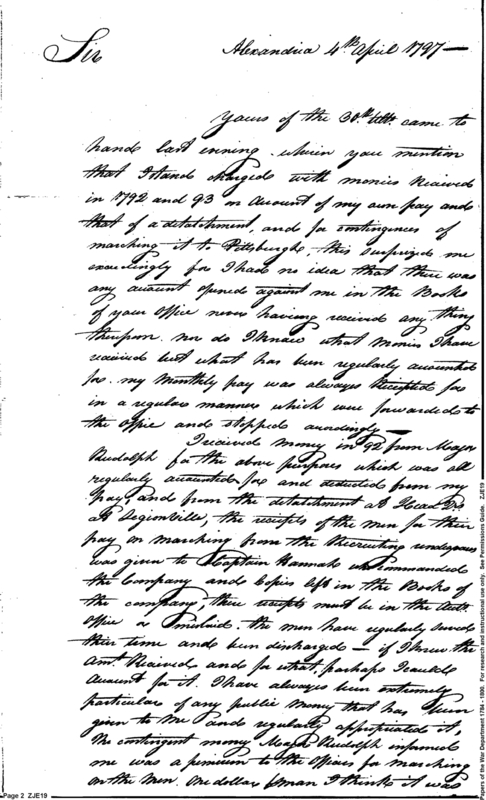 Alexandria 4th April 1797 —
Sir
Yours of the 30th Ulto. came to
hand last evning wherein you mention
that I stand charged with monies Recieved
in 1792 and 93 on Account of my own pay and
that of a detatchment, and for contingences of
marching it to Pittsburghe, this surprized me
exceedingly for I had no idea that there was
any account opened against me in the Books
of your Office never haveing received any thing
thereupon. nor do I know what Monies I have
received but what has been regularly accounted
for. my Monthly pay was always Receipted for
in a regular manner which were forwarded to
the Office and stopped accordingly —
I received money in 92 from Major
Rudolph for the above purposes which was all
regularly accounted for and deducted from my
pay, and from the detatchment at Head Qrs
at Legionville, the receipts of the men for their
pay on marching from the Recruiting rendezvous
was given to Captain Hannah who commanded
the Company and Copies left in the Books of
the company, these receipts must be in the
Office or mislaid. the men have regularly served
their time and been discharged — if I knew the
Amt. Recieved and for what, perhaps I could
Account for it. I have always been extremely
particular of any public Money that has been
given to Me and regularly appropriated it,
the contingent money Major Rudolph informed
me was a premium to the Officers for marching
on the Men. One dollar man I think it was
Page 2 ZJE19
Papers of the War Department 1784 - 1800. For research and instructional use only. See Permissions Guide. ZJE19